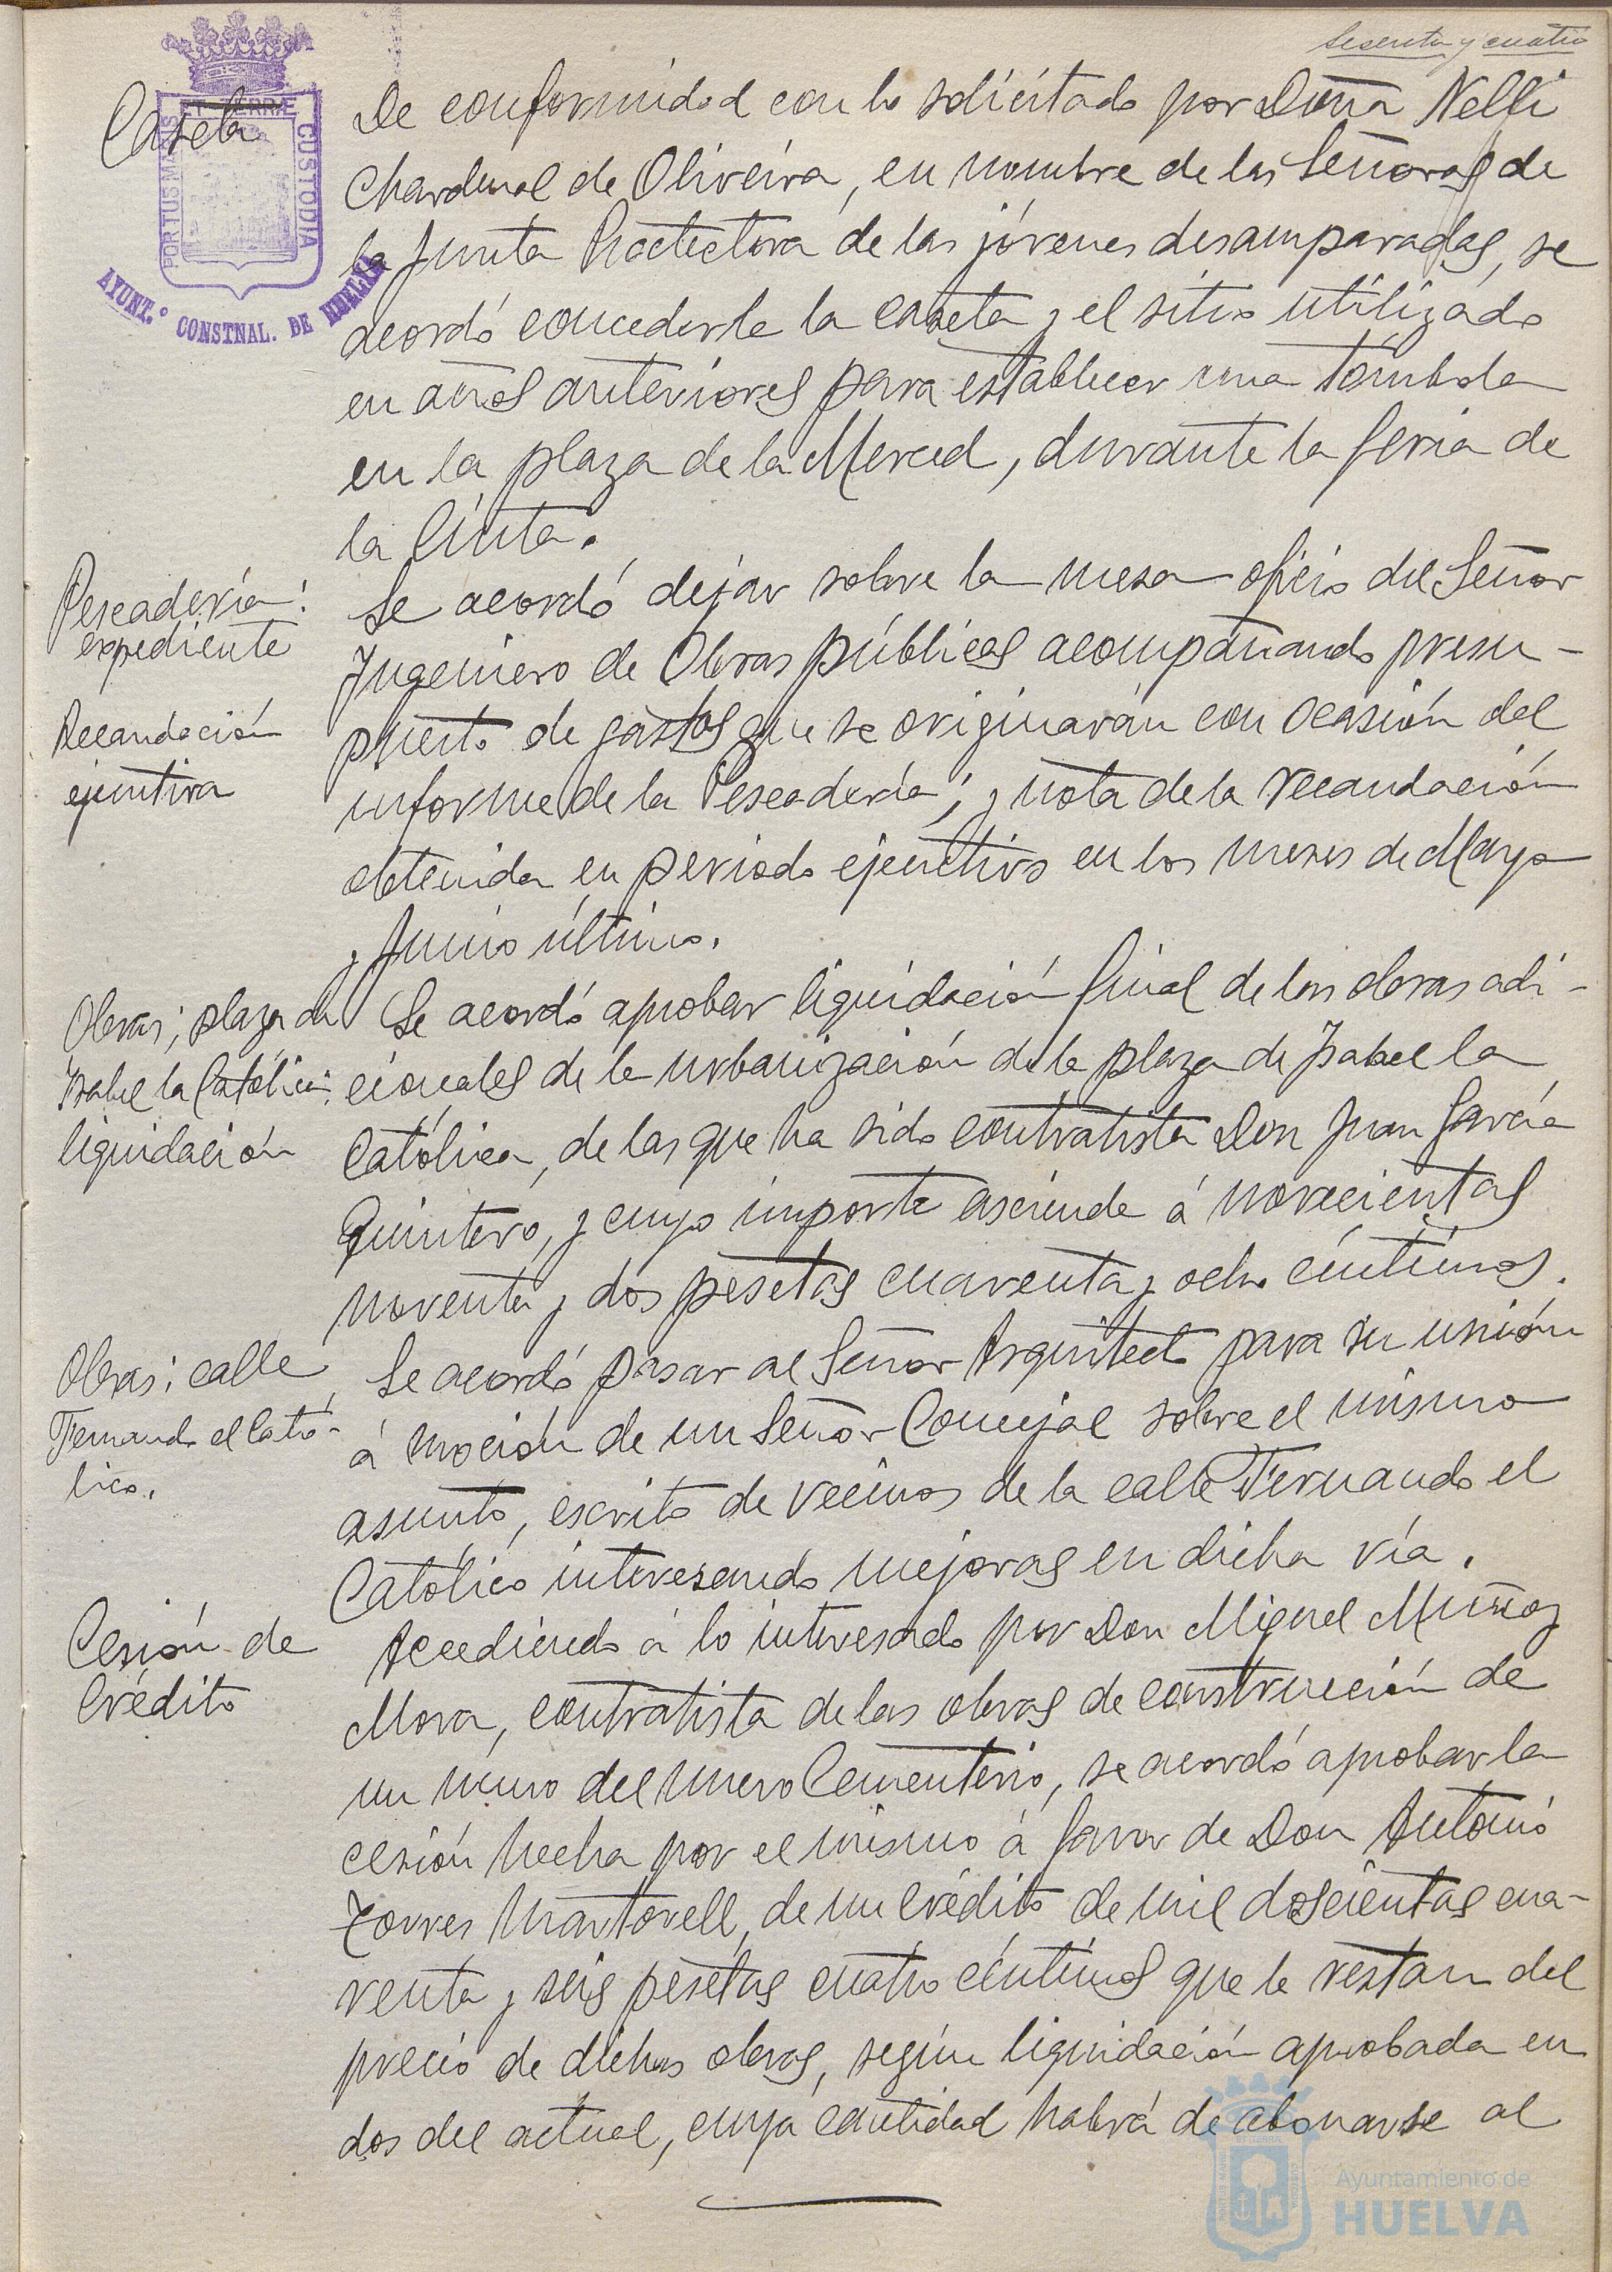 sesenta y cuatro
Caseta
PORTUS MARIS
ET TERRÆ
CUSTODIA
AYUNT.º CONSTNAL. DE HUELVA
De conformidad con lo solicitado por Doña Nelfi
Chardenal de Oliveira, en nombre de las Señoras de
la Junta Protectora de las jóvenes desamparadas, se
acordó concederle la caseta y el sitio utilizado
en años anteriores para establecer una tómbola
en la plaza de la Merced, durante la feria de
la Cinta.
Pescadería:
expediente
Recaudación
ejecutiva
Se acordó dejar sobre la mesa oficio del Señor
Ingeniero de Obras públicas acompañando presu-
puesto de gastos que se originarán con ocasión del
informe de la Pescadería; y nota de la recaudación
obtenida en periodo ejecutivo en los meses de Mayo
y Junio último.
Obras; plaza de
Isabel la Católica:
liquidación
Se acordó aprobar liquidación final de las obras adi-
cionales de la urbanización de la plaza de Isabel la
Católica, de las que ha sido contratista Don Juan García
Quintero, y cuyo importe asciende á novecientas
noventa y dos pesetas cuarenta y ocho céntimos.
Obras; calle
Fernando el Cató-
lico.
Se acordó pasar al Señor Arquitecto para su unión
á moción de un Señor Concejal sobre el mismo
asunto, escrito de vecinos de la calle Fernando el
Católico interesando mejoras en dicha vía.
Cesión de
Crédito
Accediendo á lo interesado por Don Miguel Muñoz
Mora, contratista de las obras de construcción de
un muro del nuevo Cementerio, se acordó aprobar la
cesión hecha por el mismo á favor de Don Antonio
Torres Martorell, de un crédito de mil doscientas cua-
renta y seis pesetas cuatro céntimos que le restan del
precio de dichas obras, según liquidación aprobada en
dos del actual, cuya cantidad habrá de abonarse al
Ayuntamiento de
HUELVA